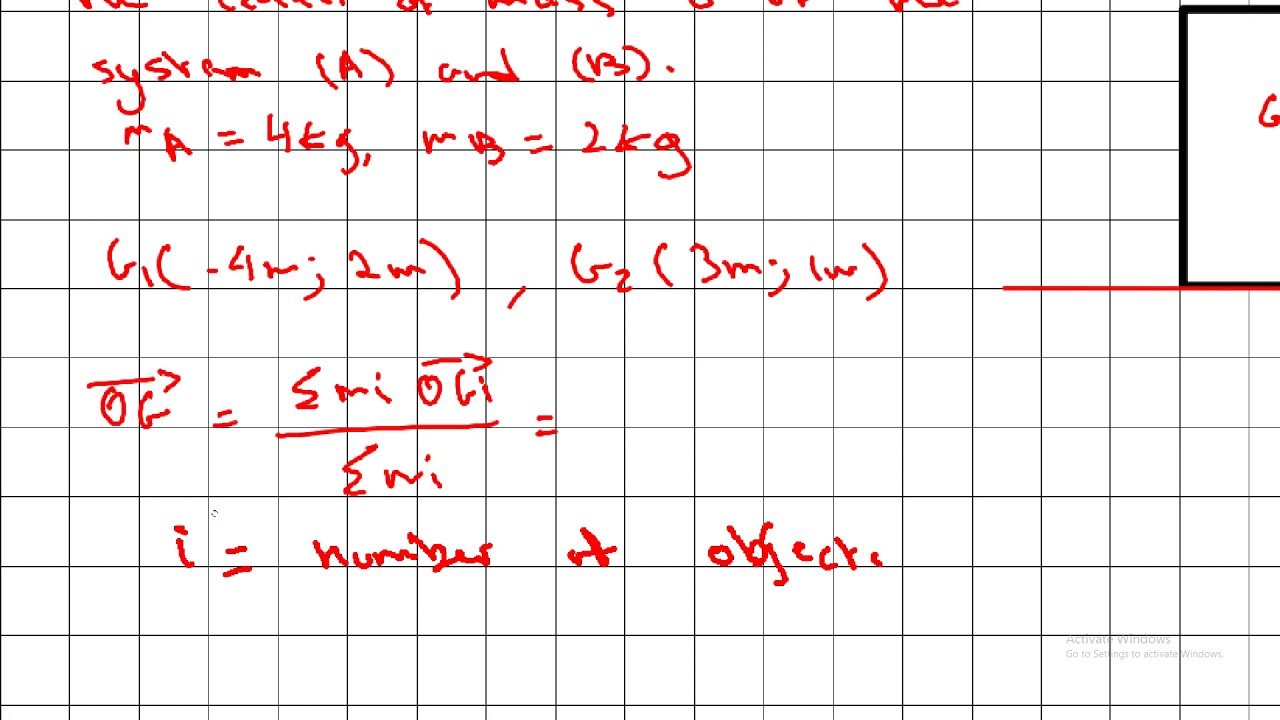 of mass G of the
system (A) and (B).
mA = 4kg, mB = 2kg
G
G1(-4m; 2m), G2(3m; 1m)
OG→ = Σmi OGi→ / Σmi =
i = number of objects
Activate Windows
Go to Settings to activate Windows.